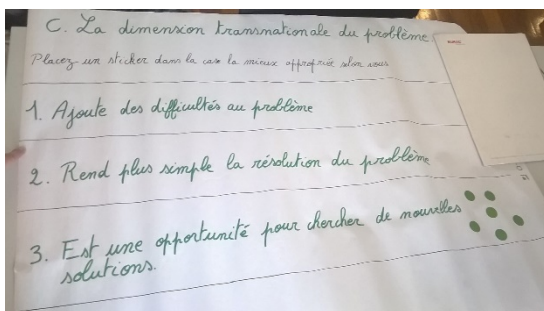 C. La dimension transnationale du problème
Placez un sticker dans la case la mieux appropriée selon vous
1. Ajoute des difficultés au problème
2. Rend plus simple la résolution du problème
3. Est une opportunité pour chercher de nouvelles
solutions.